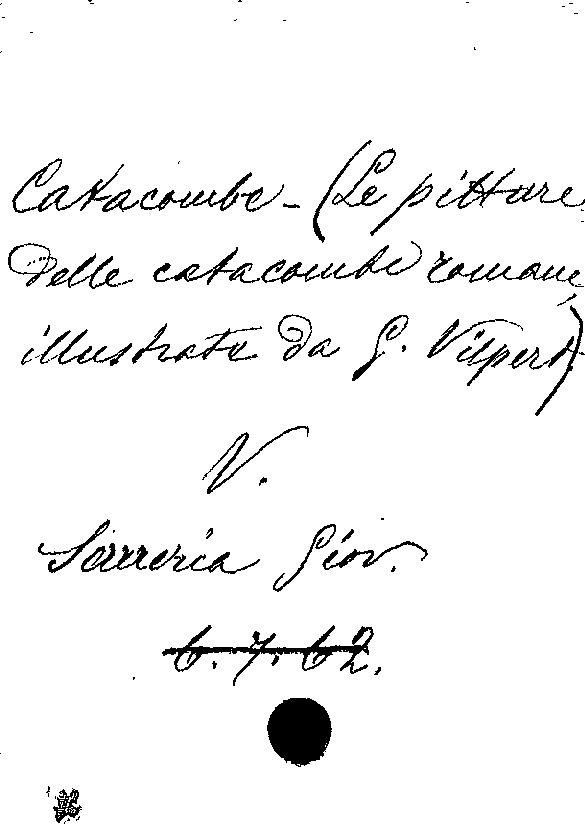 Catacombe - (Le pitture
delle catacombe romane,
illustrate da G. Vilpert)
V.
Serreria Giov.
6.7.62.